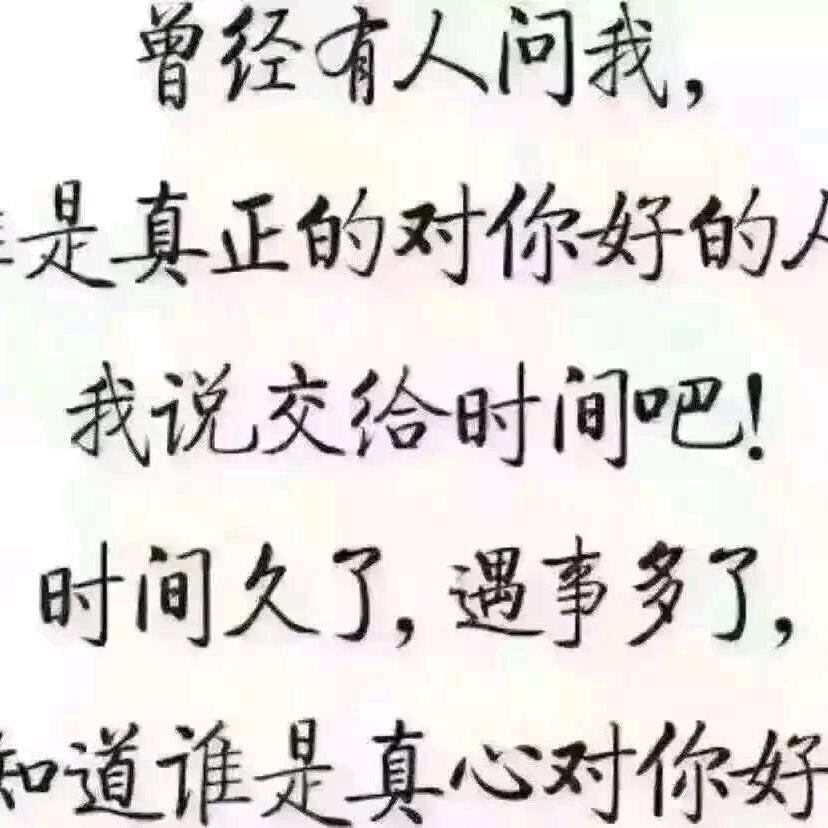 曾经有人问我，
是真正的对你好的人
我说交给时间吧！
时间久了，遇事多了，
知道谁是真心对你好